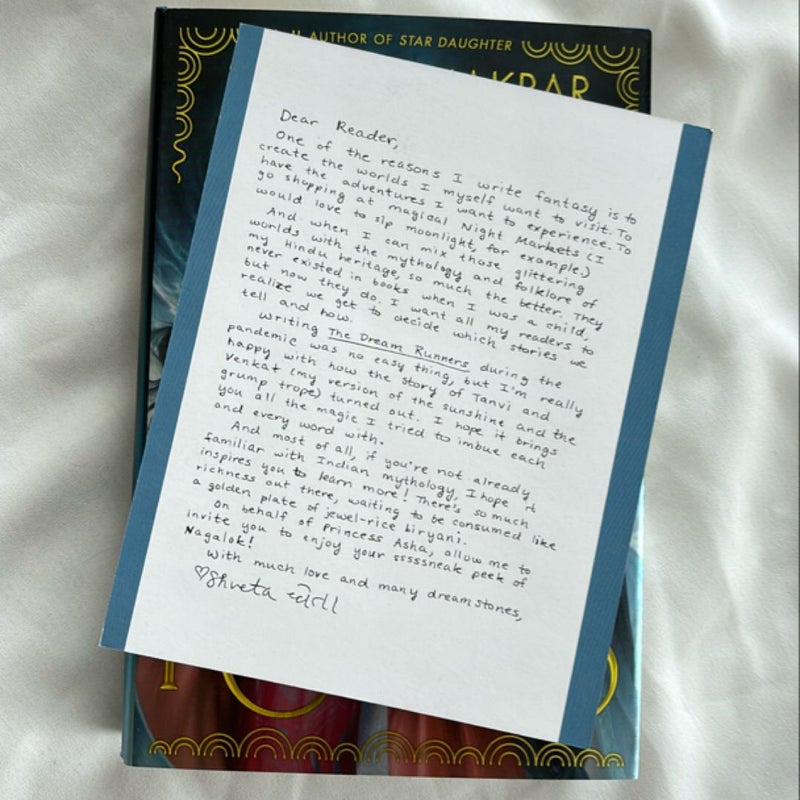 AUTHOR OF STAR DAUGHTER
AKRAR
Dear Reader,
One of the reasons I write fantasy is to
create the worlds I myself want to visit. To
have the adventures I want to experience. To
go shopping at magical Night Markets (I
would love to sip moonlight, for example.)
And when I can mix those glittering
worlds with the mythology and folklore of
my Hindu heritage, so much the better. They
never existed in books when I was a child,
but now they do. I want all my readers to
realize we get to decide which stories we
tell and how.
Writing The Dream Runners during the
pandemic was no easy thing, but I'm really
happy with how the story of Tanvi and
Venkat (my version of the sunshine and the
grump trope) turned out. I hope it brings
you all the magic I tried to imbue each
and every word with.
And most of all, if you're not already
familiar with Indian mythology, I hope it
inspires you to learn more! There's so much
richness out there, waiting to be consumed like
a golden plate of jewel-rice biryani.
On behalf of Princess Asha, allow me to
invite you to enjoy your sssssneak peek of
Nagalok!
With much love and many dreamstones,
♡Shveta